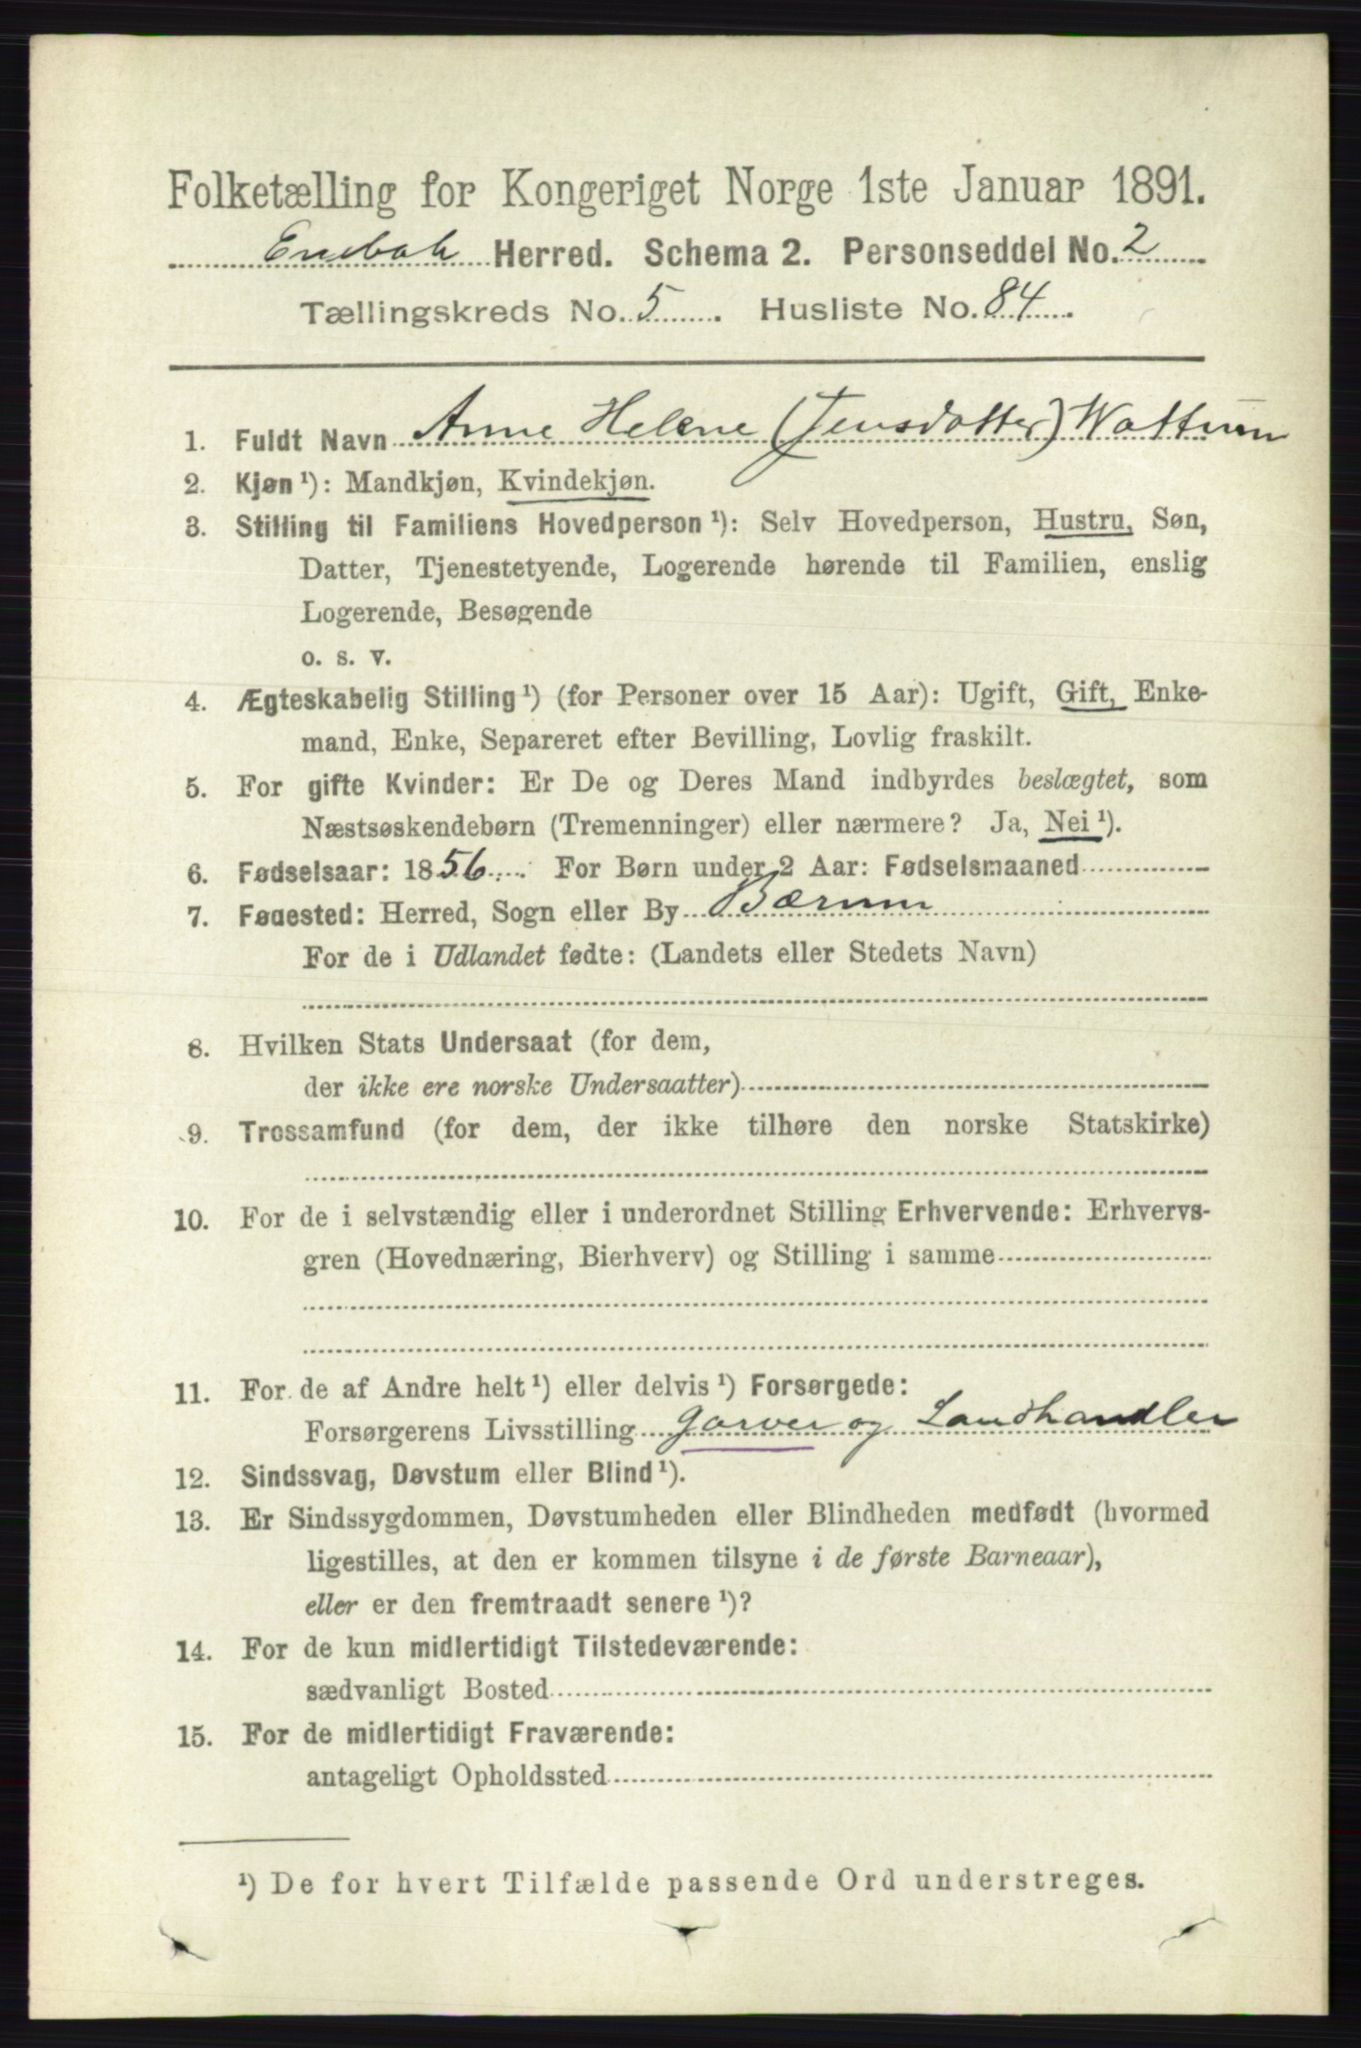 Folketælling for Kongeriget Norge 1ste Januar 1891.
Enebak Herred. Schema 2. Personseddel No. 2
Tællingskreds No. 5. Husliste No. 84.
1. Fuldt Navn Anne Helene (Jensdatter) Wattum
2. Kjøn ¹): Mandkjøn, Kvindekjøn.
3. Stilling til Familiens Hovedperson ¹): Selv Hovedperson, Hustru, Søn,
Datter, Tjenestetyende, Logerende hørende til Familien, enslig
Logerende, Besøgende
o. s. v.
4. Ægteskabelig Stilling ¹) (for Personer over 15 Aar): Ugift, Gift, Enke-
mand, Enke, Separeret efter Bevilling, Lovlig fraskilt.
5. For gifte Kvinder: Er De og Deres Mand indbyrdes beslægtet, som
Næstsøskendebørn (Tremenninger) eller nærmere? Ja, Nei ¹).
6. Fødselsaar: 1856. For Børn under 2 Aar: Fødselsmaaned
7. Fødested: Herred, Sogn eller By Bærum
For de i Udlandet fødte: (Landets eller Stedets Navn)
8. Hvilken Stats Undersaat (for dem,
der ikke ere norske Undersaatter)
9. Trossamfund (for dem, der ikke tilhøre den norske Statskirke)
10. For de i selvstændig eller i underordnet Stilling Erhvervende: Erhvervs-
gren (Hovednæring, Bierhverv) og Stilling i samme
11. For de af Andre helt ¹) eller delvis ¹) Forsørgede:
Forsørgerens Livsstilling Garver og Landhandler
12. Sindssvag, Døvstum eller Blind ¹).
13. Er Sindssygdommen, Døvstumheden eller Blindheden medfødt (hvormed
ligestilles, at den er kommen tilsyne i de første Barneaar),
eller er den fremtraadt senere ¹)?
14. For de kun midlertidigt Tilstedeværende:
sædvanligt Bosted
15. For de midlertidigt Fraværende:
antageligt Opholdssted
¹) De for hvert Tilfælde passende Ord understreges.